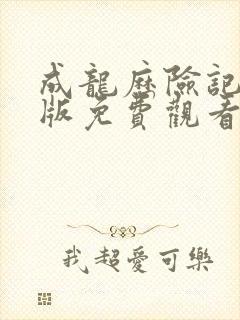 成龍歷險記
版免費觀看
我超愛可樂